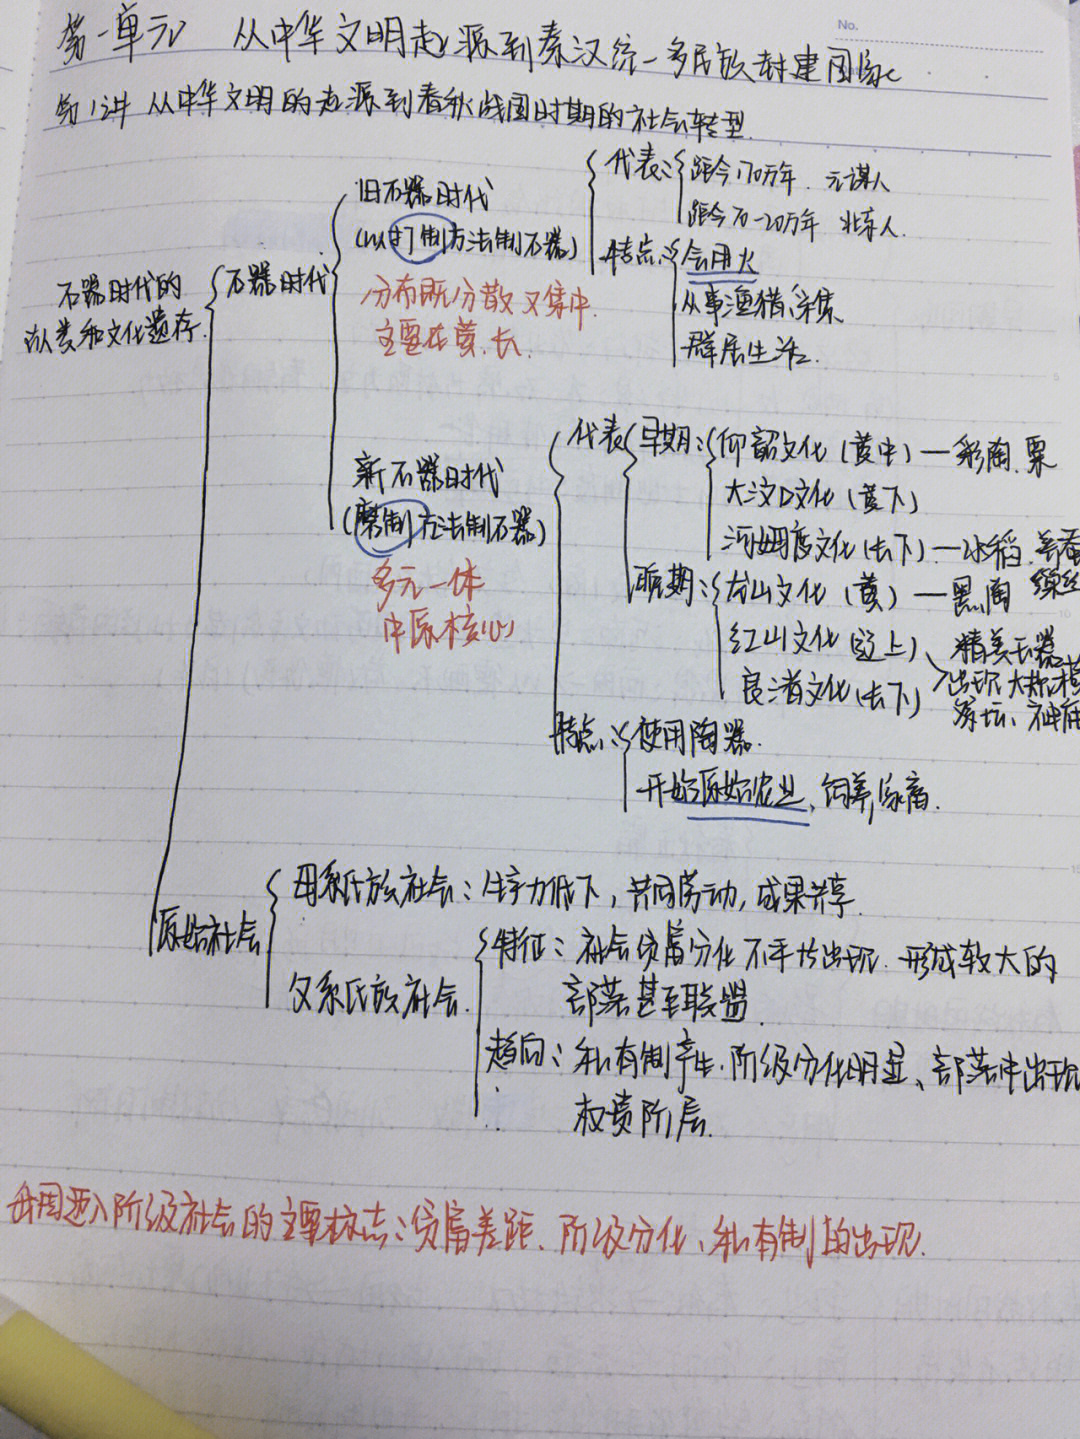 No.
第一单元 从中华文明起源到秦汉统一多民族封建国家
第1讲 从中华文明的起源到春秋战国时期的社会转型
石器时代的
古人类和文化遗存
石器时代
旧石器时代
(以打制方法制石器)
分布既分散又集中
主要在黄、长
代表:
距今170万年 元谋人
距今70-20万年 北京人
特点:
会用火
从事渔猎、采集
群居生活
新石器时代
(磨制方法制石器)
多元一体
中原核心
代表
早期:
仰韶文化(黄中)—彩陶 粟
大汶口文化(黄下)
河姆渡文化(长下)—水稻、养蚕
缫丝
晚期:
龙山文化(黄)—黑陶
红山文化(辽上)、精美玉器
良渚文化(长下)
出现大规模
祭坛、神庙
特点:
使用陶器
开始原始农业,饲养家畜
原始社会
母系氏族社会:生产力低下,共同劳动,成果共享
父系氏族社会
特征:社会贫富分化不平等出现 形成较大的
部落甚至联盟
趋向:私有制产生、阶级分化明显、部落中出现
权贵阶层
我国迈入阶级社会的主要标志:贫富差距、阶级分化、私有制的出现